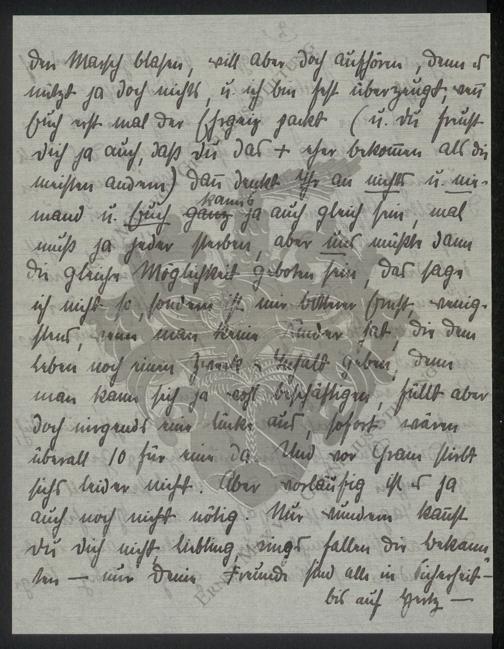 den Marsch blasen, will aber doch aufhören, denn es
nützt ja doch nichts, u. ich bin fest überzeugt, wenn
Euch erst mal der Ehrgeiz packt (u. du freust
dich ja auch, daß du das + eher bekommen als die
meisten andern) dann denkt Ihr an nichts u. nie-
mand u. Euch ganz kanns ja auch gleich sein, mal
muß ja jeder sterben, aber uns müßte dann
die gleiche Möglichkeit geboten sein, das sage
ich nicht so, sondern ist mir bitterer Ernst, wenig-
stens, wenn man keine Kinder hat, die dem
Leben noch einen Zweck u. Inhalt geben, denn
man kann sich ja wohl beschäftigen, füllt aber
doch nirgends eine Lücke aus sofort wären
überall 10 für eine da. Und vor Gram stirbt
sichs leider nicht. Aber vorläufig ist es ja
auch noch nicht nötig. Nur wundern kannst
du dich nicht, Liebling, rings fallen die Bekann-
ten — nur deine Freunde sind alle in Sicherheit —
bis auf Hertz —